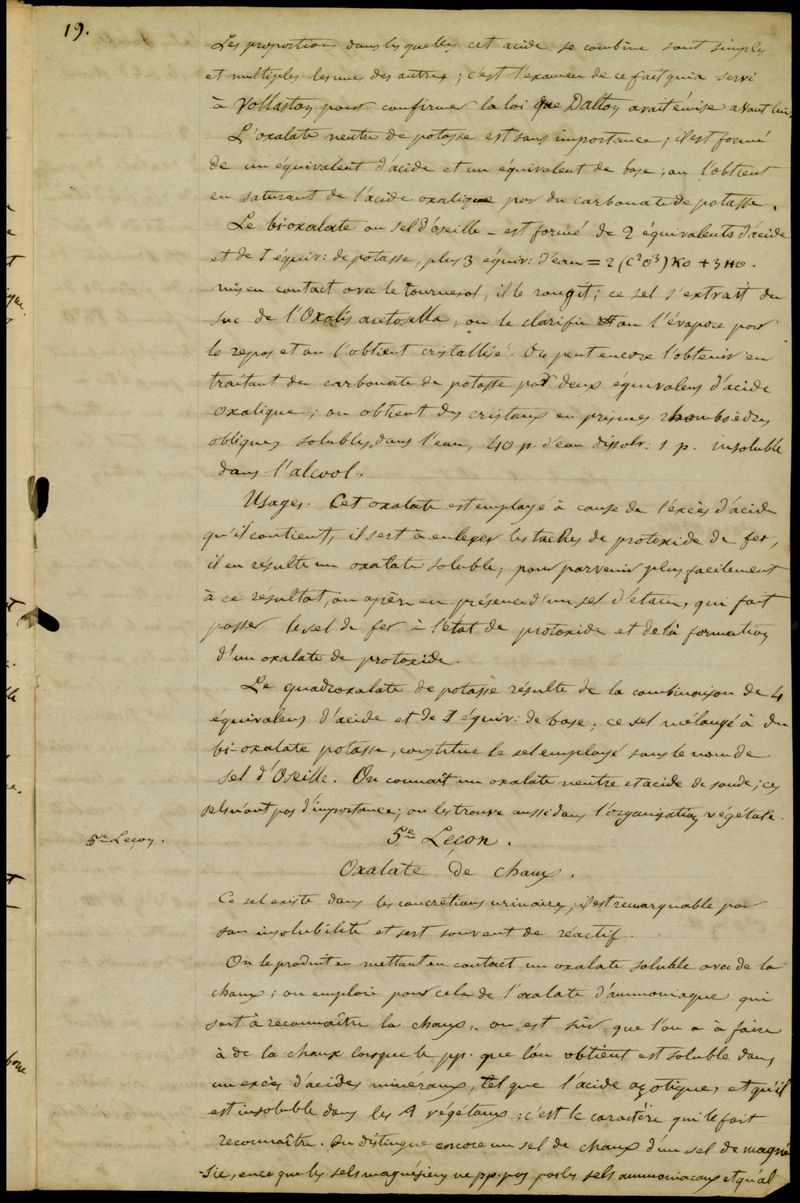 19.
Les proportions dans lesquelles cet acide se combine sont simples
et multiples les unes des autres ; c'est l'examen de ce fait qui a servi
à Vollaston pour confirmer la loi que Dalton avait émise avant lui.
L'oxalate neutre de potasse est sans importance ; il est formé
de un équivalent d'acide et un équivalent de base ; on l'obtient
en saturant de l'acide oxalique par du carbonate de potasse.
Le bi-oxalate ou sel d'oseille - est formé de 2 équivalents d'acide
et de 1 équiv: de potasse, plus 3 équiv: d'eau = 2 (C²O³) KO + 3 HO.
mis en contact avec le tournesol, il le rougit ; ce sel s'extrait du
suc de l'Oxalis acetosella ; on le clarifie et on l'évapore pour
le repos et on l'obtient cristallisé. On peut encore l'obtenir en
traitant du carbonate de potasse par deux équivalens d'acide
oxalique ; on obtient des cristaux en prismes rhomboèdres
obliques solubles dans l'eau, 40 p. d'eau dissolv: 1 p. insoluble
dans l'alcool.
Usages. Cet oxalate est employé à cause de l'excès d'acide
qu'il contient, il sert à enlever les taches de protoxide de fer,
il en résulte un oxalate soluble ; pour parvenir plus facilement
à ce résultat, on opère en présence d'un sel d'étain, qui fait
passer le sel de fer à l'état de protoxide et de là formation
d'un oxalate de protoxide.
Le quadroxalate de potasse résulte de la combinaison de 4
équivalens d'acide et de 1 équiv: de base ; ce sel mélangé à du
bi-oxalate potasse, constitue le sel employé sous le nom de
Sel d'Oseille. On connaît un oxalate neutre et acide de soude ; ces
sels n'ont pas d'importance ; on les trouve aussi dans l'organisation végétale.
5e Leçon.
5e Leçon.
Oxalate de chaux.
Ce sel existe dans les concrétions urinaires ; il est remarquable par
son insolubilité et sert souvent de réactif.
On le produit en mettant en contact un oxalate soluble avec de la
chaux ; on emploie pour cela de l'oxalate d'ammoniaque qui
sert à reconnaître la chaux. on est sûr que l'on a à faire
à de la chaux lorsque le pp. que l'on obtient est soluble dans
un excès d'acides minéraux, tel que l'acide azotique, et qu'il
est insoluble dans les A végétaux ; c'est le caractère qui le fait
reconnaître. On distingue encore un sel de chaux d'un sel de magné
sie, en ce que les sels magnésiens ne pp. pas par les sels ammoniacaux et qu'al